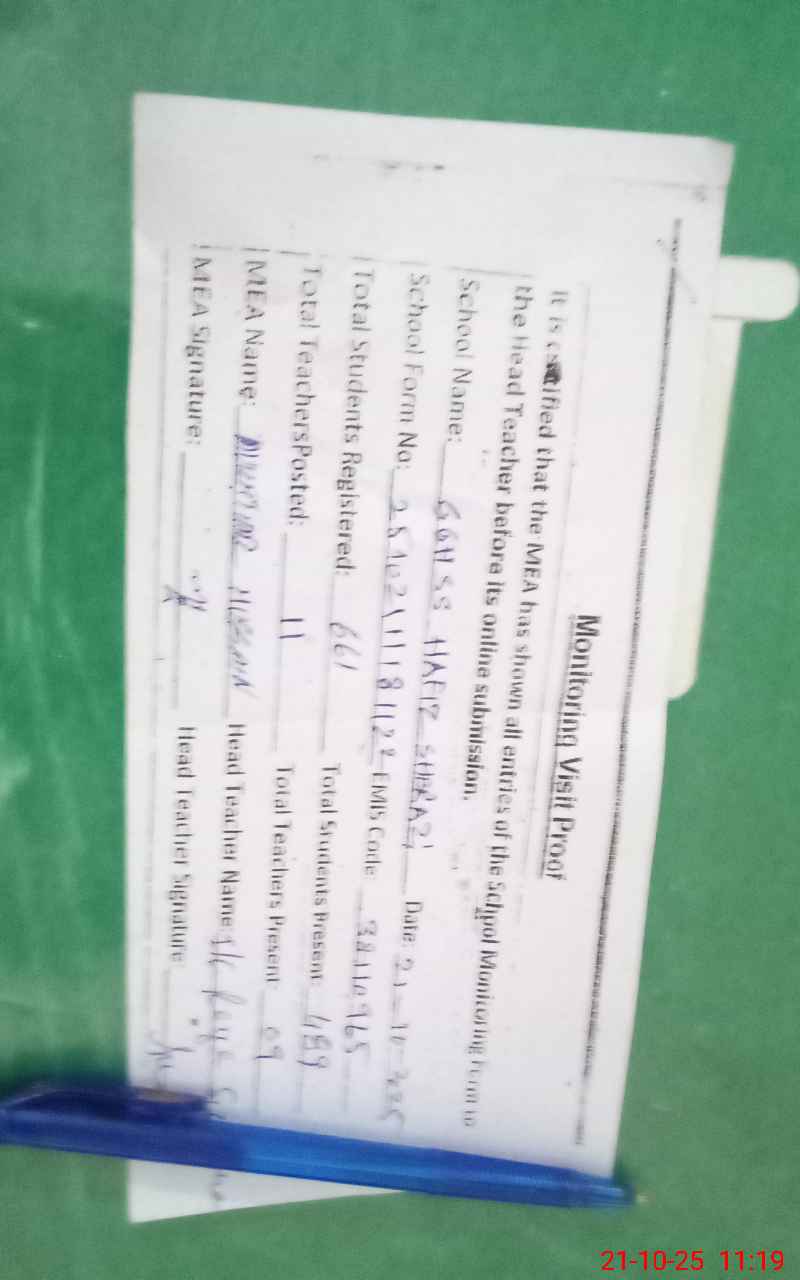 Monitoring Visit Proof
It is certified that the MEA has shown all entries of the School Monitoring Form to
the Head Teacher before its online submission.
School Name: GGHSS HAFIZ SHERAZI Date: 21-10-2025
School Form No: EMIS Code: 38110965
Total Students Registered: 661 Total Students Present: 489
Total TeachersPosted: 11 Total Teachers Present: 09
MEA Name: HUSSAIN Head Teacher Name:
MEA Signature: Head Teacher Signature:
21-10-25 11:19